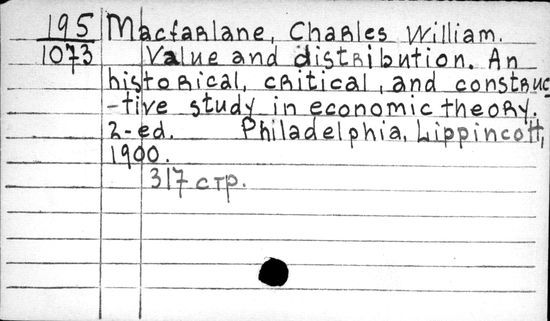 195 Macfarlane, Charles William.
1073 Value and distribution. An
historical, critical, and construc
-tive study in economic theory.
2-ed. Philadelphia, Lippincott,
1900.
317 стр.